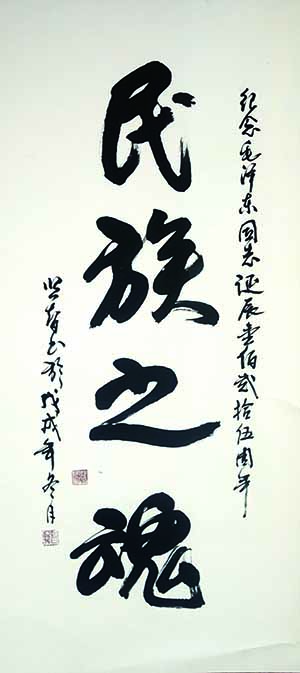 纪念毛泽东同志诞辰壹佰贰拾伍周年
民族之魂
书於戊戌年冬月